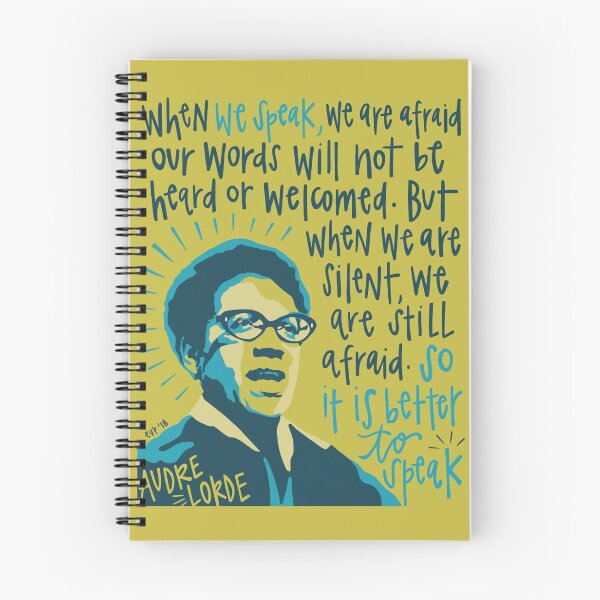 When we speak, we are afraid
our words will not be
heard or welcomed. But
when we are
silent, we
are still
afraid. So
it is better
to
speak
evp '18
AUDRE
LORDE